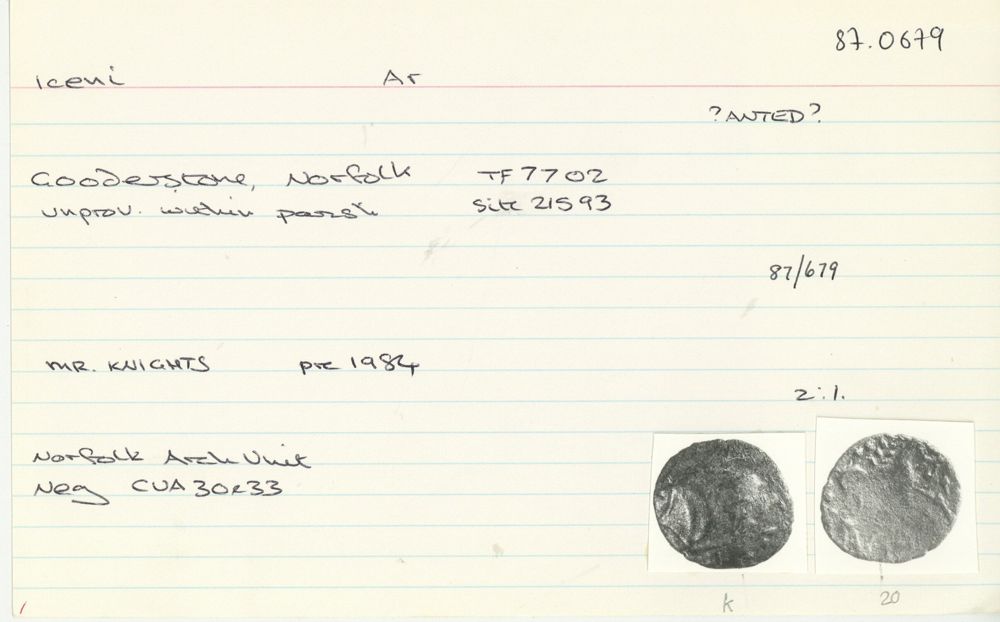 87.0679
Iceni Ar
?ANTED?
Gooderstone, Norfolk TF 7702
unprov. within parish Site 21593
87/679
MR. KNIGHTS pre 1984
2:1.
Norfolk Arch Unit
Neg CUA 30 & 33
k 20